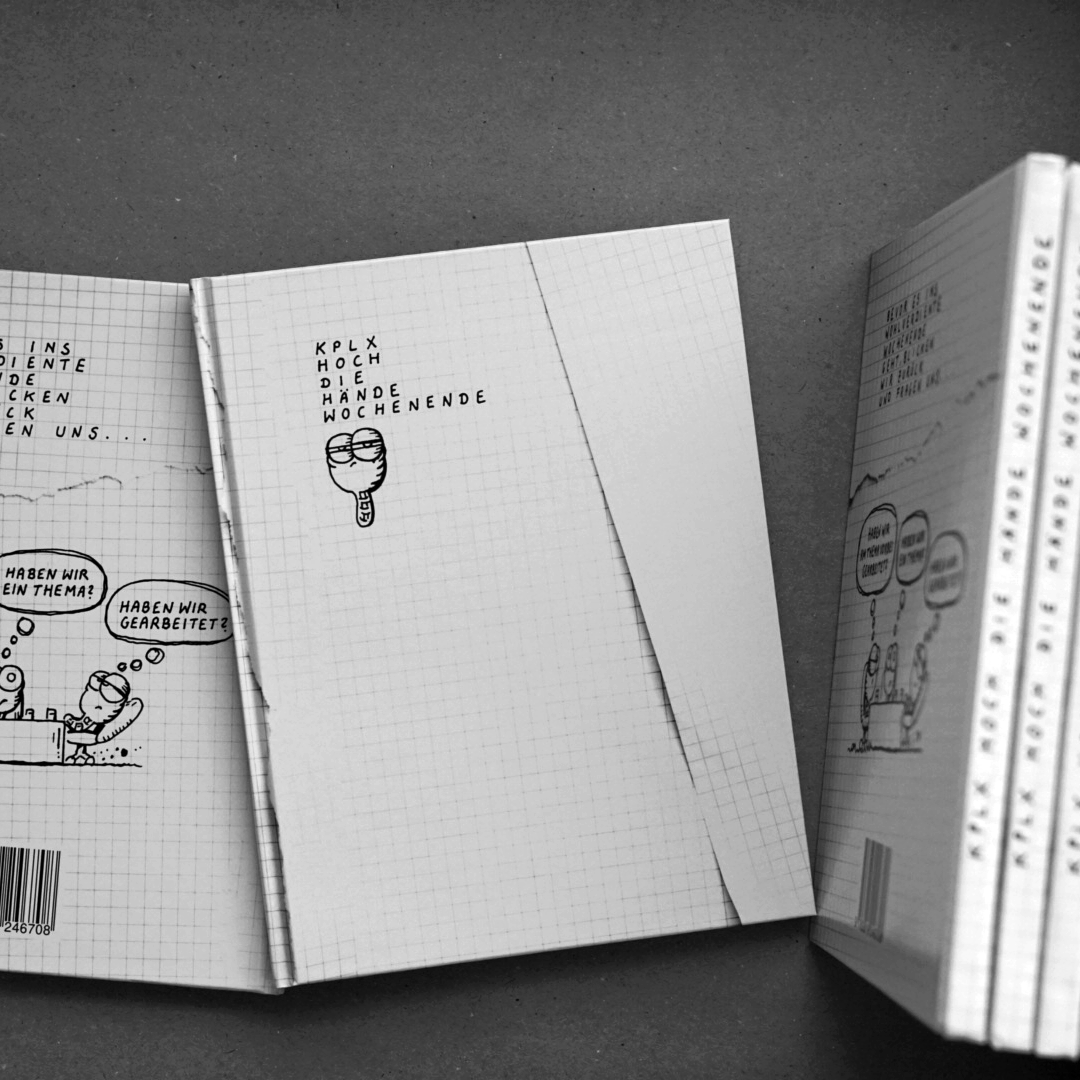 S INS
DIENTE
NDE
CKEN
CK
EN UNS...
HABEN WIR
EIN THEMA?
HABEN WIR
GEARBEITET?
246708
KPLX
HOCH
DIE
HÄNDE
WOCHENENDE
BEVOR ES INS
WOHLVERDIENTE
WOCHENENDE
GEHT, BLICKEN
WIR ZURÜCK
UND FRAGEN UNS...
HABEN WIR
AM THEMA VORBEI
GEARBEITET?
HABEN WIR
EIN THEMA?
HABEN WIR
GEARBEITET?
KPLX HOCH DIE HÄNDE WOCHENENDE
KPLX HOCH DIE HÄNDE WOCHENENDE
KPLX